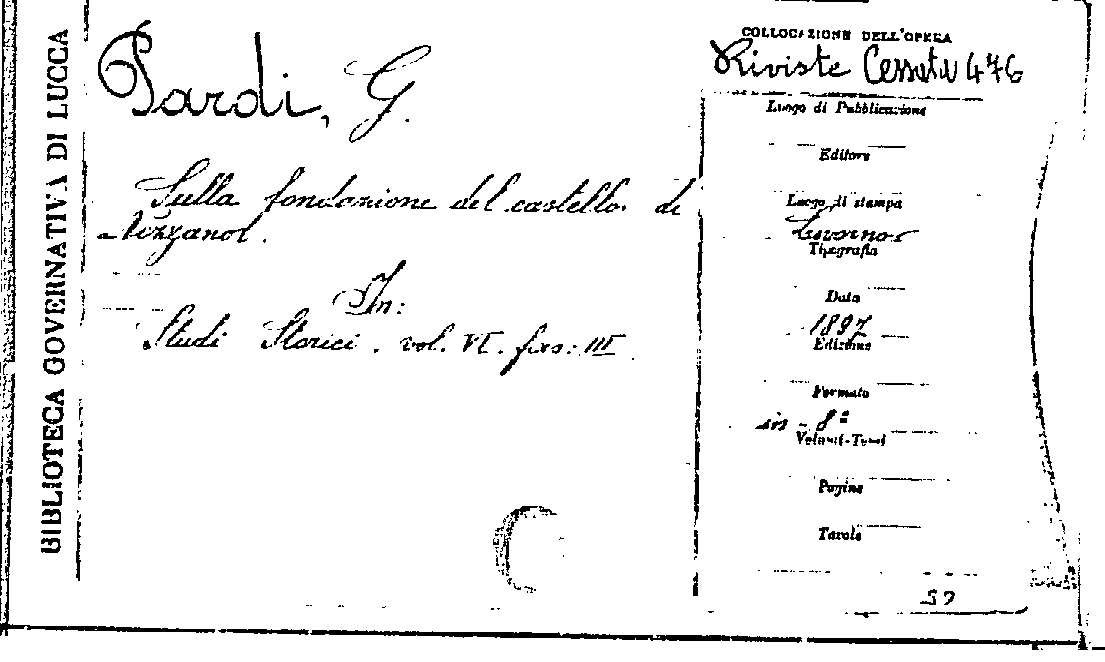 BIBLIOTECA GOVERNATIVA DI LUCCA
Pardi, G.
Sulla fondazione del castello di
Nizzano.
In:
Studi Storici. vol. VI. fas: III
COLLOCAZIONE DELL'OPERA
Riviste Cessate 476
Luogo di Pubblicazione
Editore
Luogo di stampa
Livorno
Tipografia
Data
1897
Edizione
Formato
in-8°
Volumi-Tomi
Pagine
Tavole